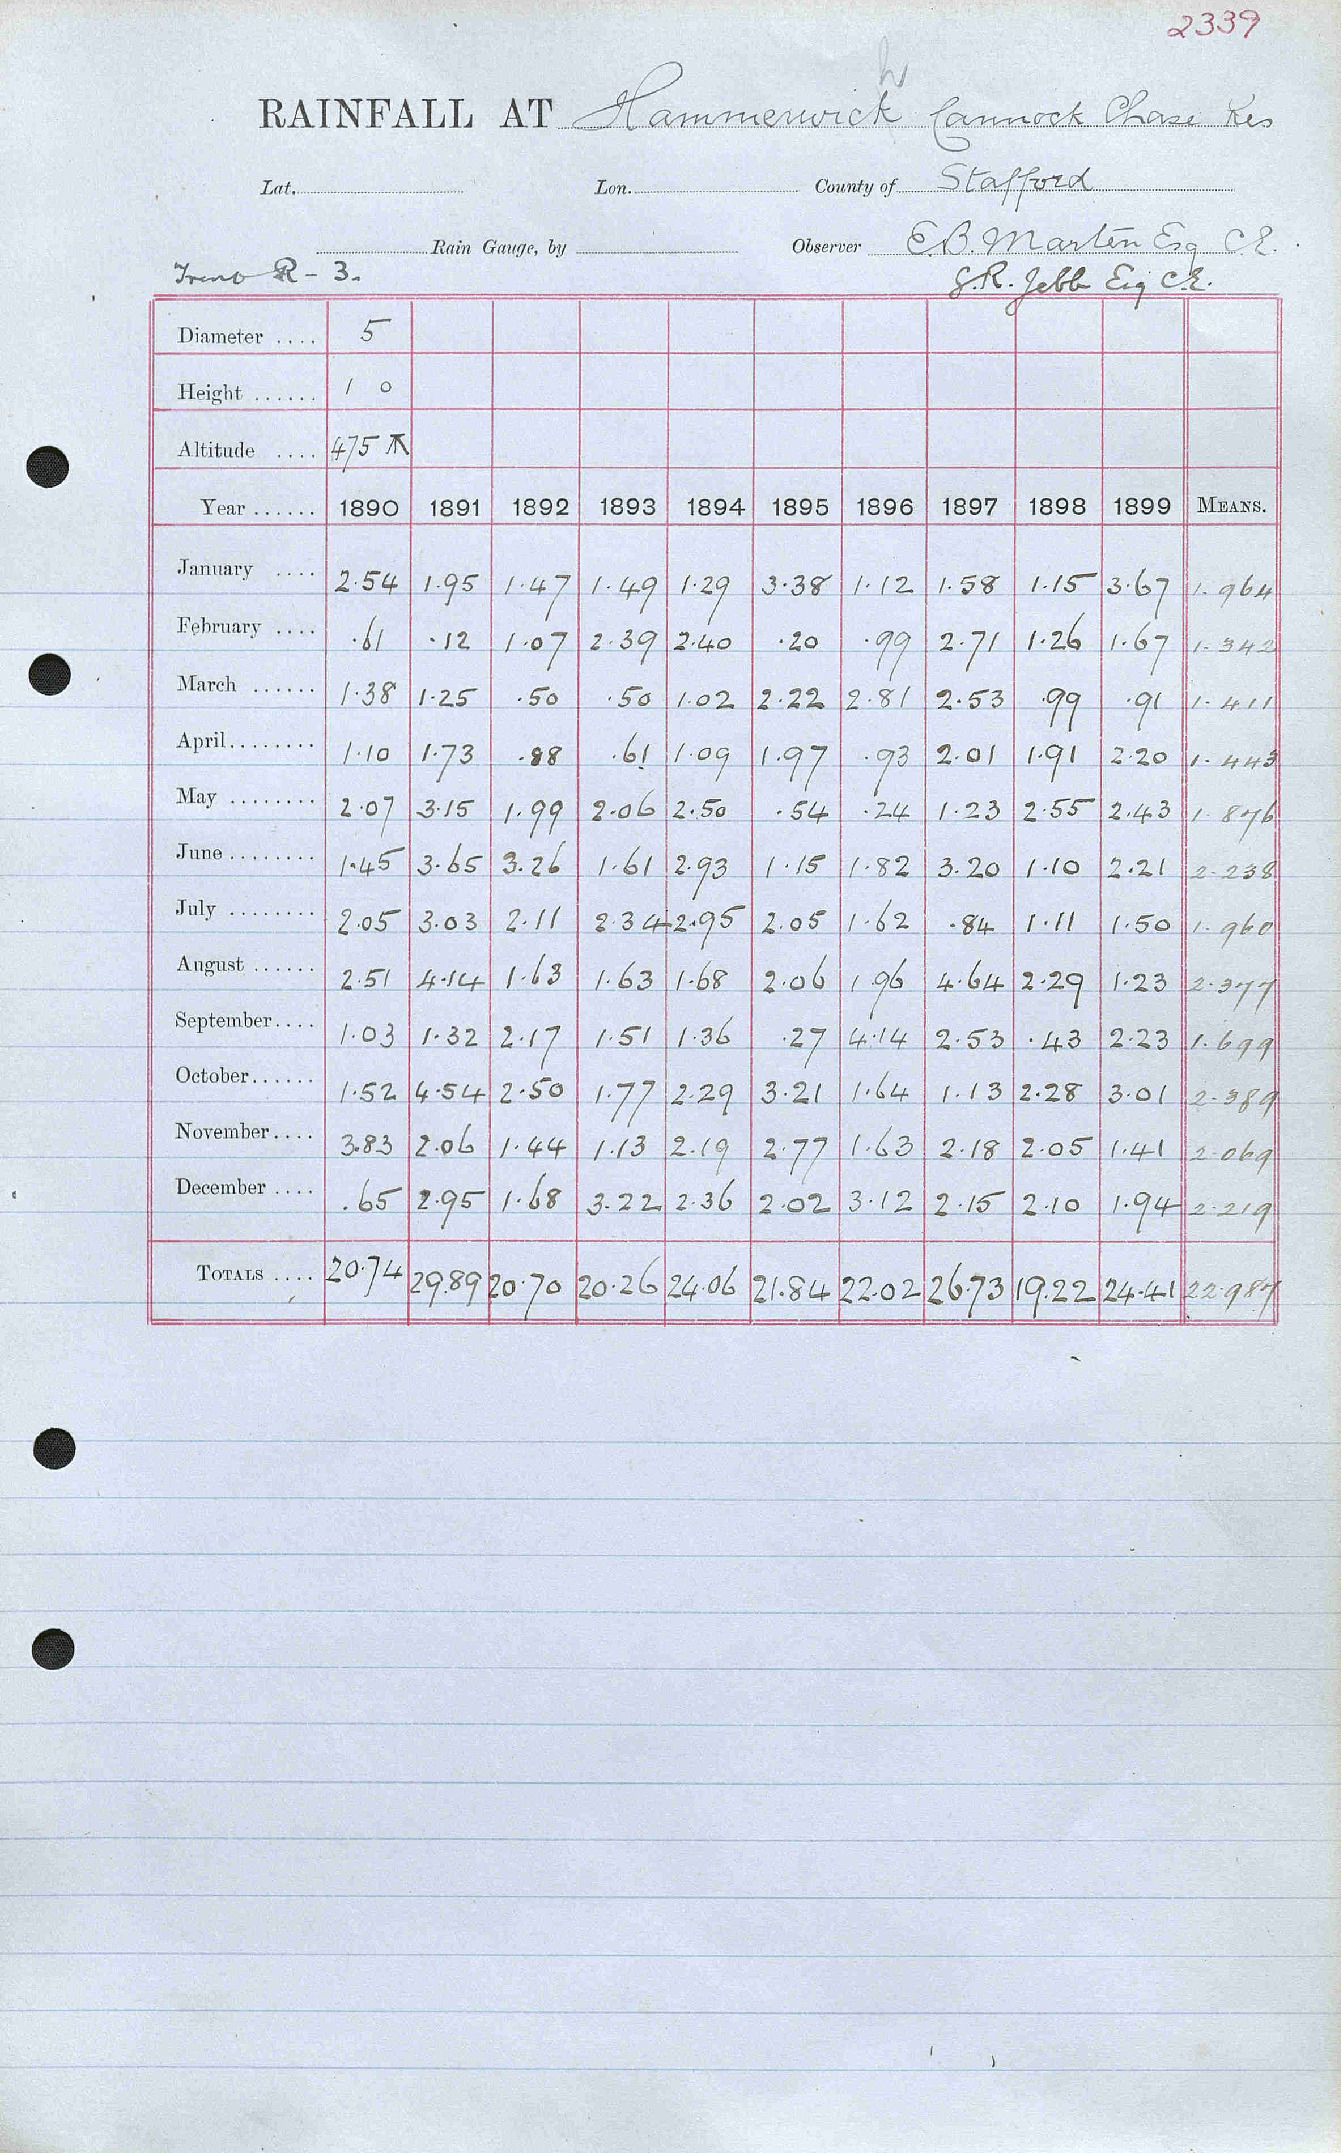 2339
h
RAINFALL AT Hammerwick Cannock Chase Res
Lat. Lon. County of Stafford
Rain Gauge, by Observer E.B. Marten Esq C.E.
Trent R - 3. S.R. Jebb Esq C.E.
Diameter .... 5
Height ...... 1 0
Altitude .... 475
Year ...... 1890 1891 1892 1893 1894 1895 1896 1897 1898 1899 MEANS.
January .... 2.54 1.95 1.47 1.49 1.29 3.38 1.12 1.58 1.15 3.67 1.964
February .... .61 .12 1.07 2.39 2.40 .20 .99 2.71 1.26 1.67 1.342
March ...... 1.38 1.25 .50 .50 1.02 2.22 2.81 2.53 .99 .91 1.411
April........ 1.10 1.73 .88 .61 1.09 1.97 .93 2.01 1.91 2.20 1.443
May ........ 2.07 3.15 1.99 2.06 2.50 .54 .24 1.23 2.55 2.43 1.876
June........ 1.45 3.65 3.26 1.61 2.93 1.15 1.82 3.20 1.10 2.21 2.238
July ........ 2.05 3.03 2.11 2.34 2.95 2.05 1.62 .84 1.11 1.50 1.960
August ...... 2.51 4.14 1.63 1.63 1.68 2.06 1.96 4.64 2.29 1.23 2.377
September.... 1.03 1.32 2.17 1.51 1.36 .27 4.14 2.53 .43 2.23 1.699
October...... 1.52 4.54 2.50 1.77 2.29 3.21 1.64 1.13 2.28 3.01 2.389
November.... 3.83 2.06 1.44 1.13 2.19 2.77 1.63 2.18 2.05 1.41 2.069
December .... .65 2.95 1.68 3.22 2.36 2.02 3.12 2.15 2.10 1.94 2.219
TOTALS .... 20.74 29.89 20.70 20.26 24.06 21.84 22.02 26.73 19.22 24.41 22.987